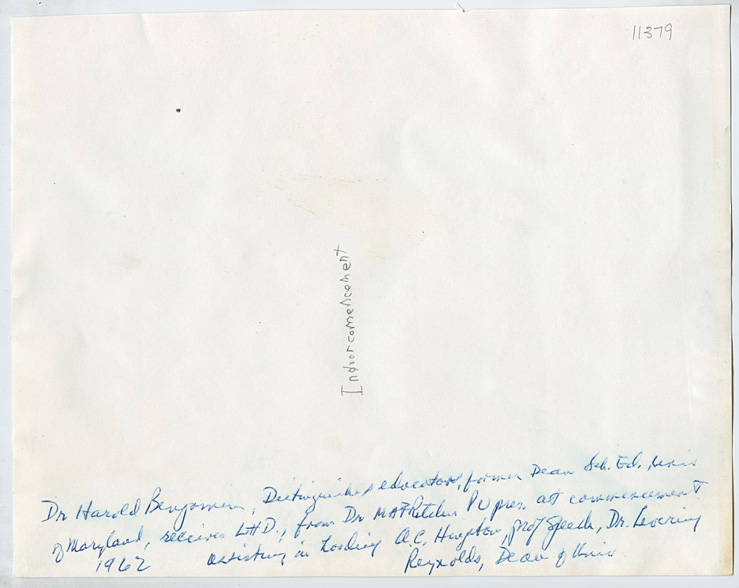 11379
Indoor comencement
Dr Harold Benjamin, Distinguished educator, former Dean Sch. Ed. Univ
of Maryland, receives LHD., from Dr. PU pres. at commencement
1962 assisting in A.C. prof Speech, Dr. Levering
Reynolds, Dean of Univ.